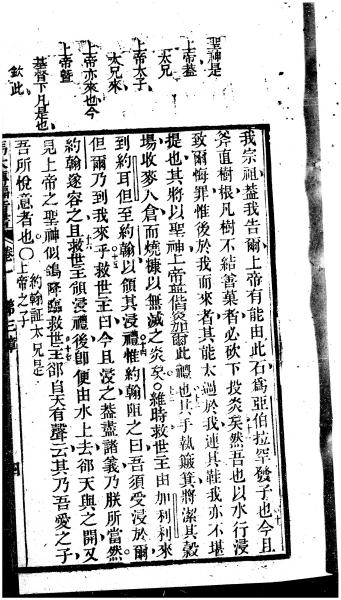 聖神是
上帝蓋
太兄
上帝太子
太兄來
上帝亦來也今
上帝曁
基督下凡是也
欽此
我宗祖葢我告爾上帝有能由此石爲亞伯拉罕發子也今且
斧直樹根凡樹不結善菓者必砍下投炎矣然吾也以水行浸
致爾悔罪惟後於我而來者其能太過於我連其鞋我亦不堪
提也其將以聖神上帝並僣炎加爾此禮也其手執簸箕將潔其穀
場收麥入倉而燒糠以無滅之炎矣○維時救世主由加利利來
到約耳但至約翰以領其浸禮惟約翰阻之曰吾須受浸於爾
但爾乃到我來乎救世主曰今且浸之葢盡諸義乃朕所當然
約翰遂容之且救世主領浸禮後卽便由水上去郤天與之開又
見上帝之聖神似鴿降臨救世主郤自天有聲云其乃吾愛之子
吾所悅意者也○約翰証太兄是上帝之子
馬太傳福音書 卷一 第三章 四